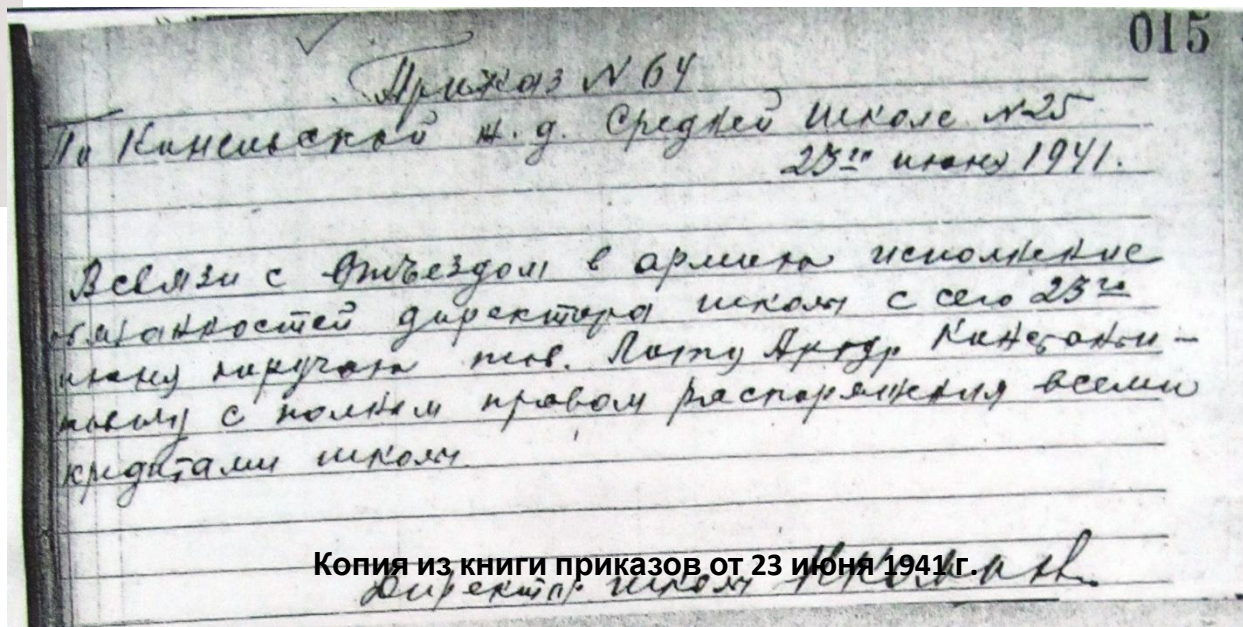 015
Приказ N 64
По Кинельской ж.д. Средней школе N25
23го июня 1941.
В связи с отъездом в армию исполнение
обязанностей директора школы с сего 23го
июня поручаю тов. Константи-
новичу с полным правом распоряжения всеми
кредитами школы
Копия из книги приказов от 23 июня 1941 г.
Директор школы